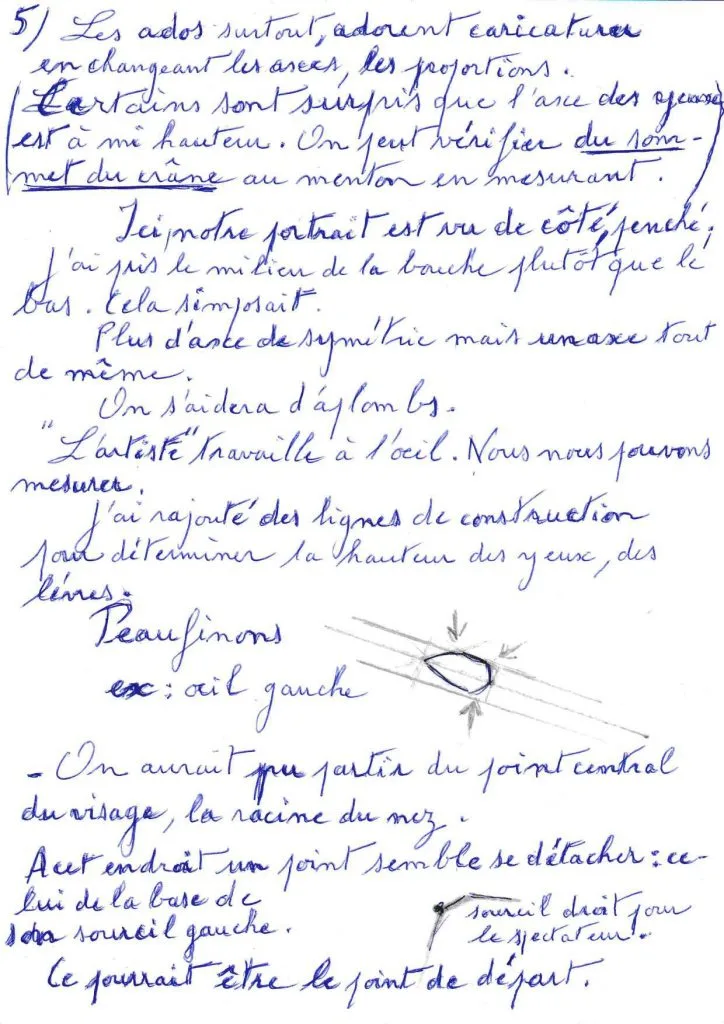 5) Les ados surtout, adorent caricaturer
en changeant les axes, les proportions.
(Certains sont surpris que l'axe des yeux
est à mi hauteur. On peut vérifier du som-
met du crâne au menton en mesurant.)
Ici, notre portrait est vu de côté, penché.
J'ai pris le milieu de la bouche plutôt que le
bas. Cela s'imposait.
Plus d'axe de symétrie mais un axe tout
de même.
On s'aidera d'aplombs.
"L'artiste" travaille à l'œil. Nous nous pouvons
mesurer.
J'ai rajouté des lignes de construction
pour déterminer la hauteur des yeux, des
lèvres.
Peaufinons
ex : œil gauche
- On aurait pu partir du point central
du visage, la racine du nez.
A cet endroit un point semble se détacher : ce-
lui de la base de
son sourcil gauche.
sourcil droit pour
le spectateur.
Ce pourrait être le point de départ.